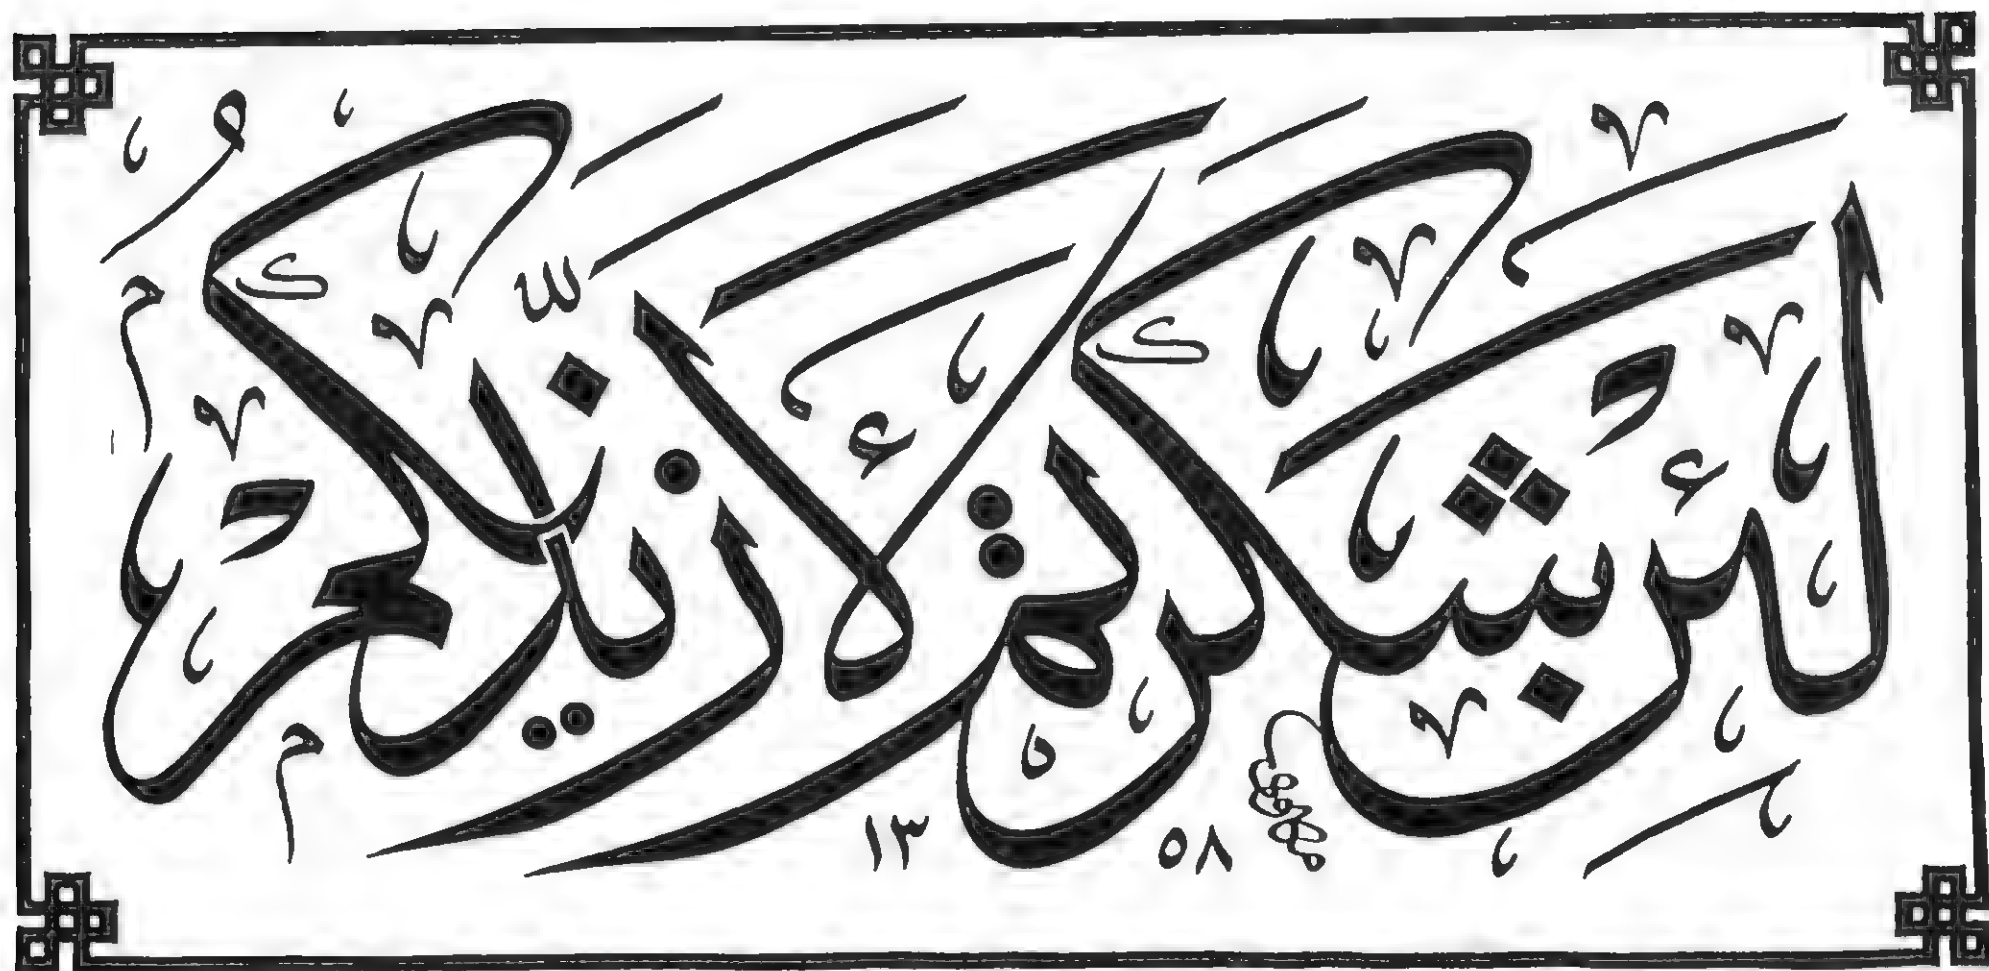 لَئِنْ شَكَرْتُمْ لَأَزِيدَنَّكُمْ
١٣٥٨